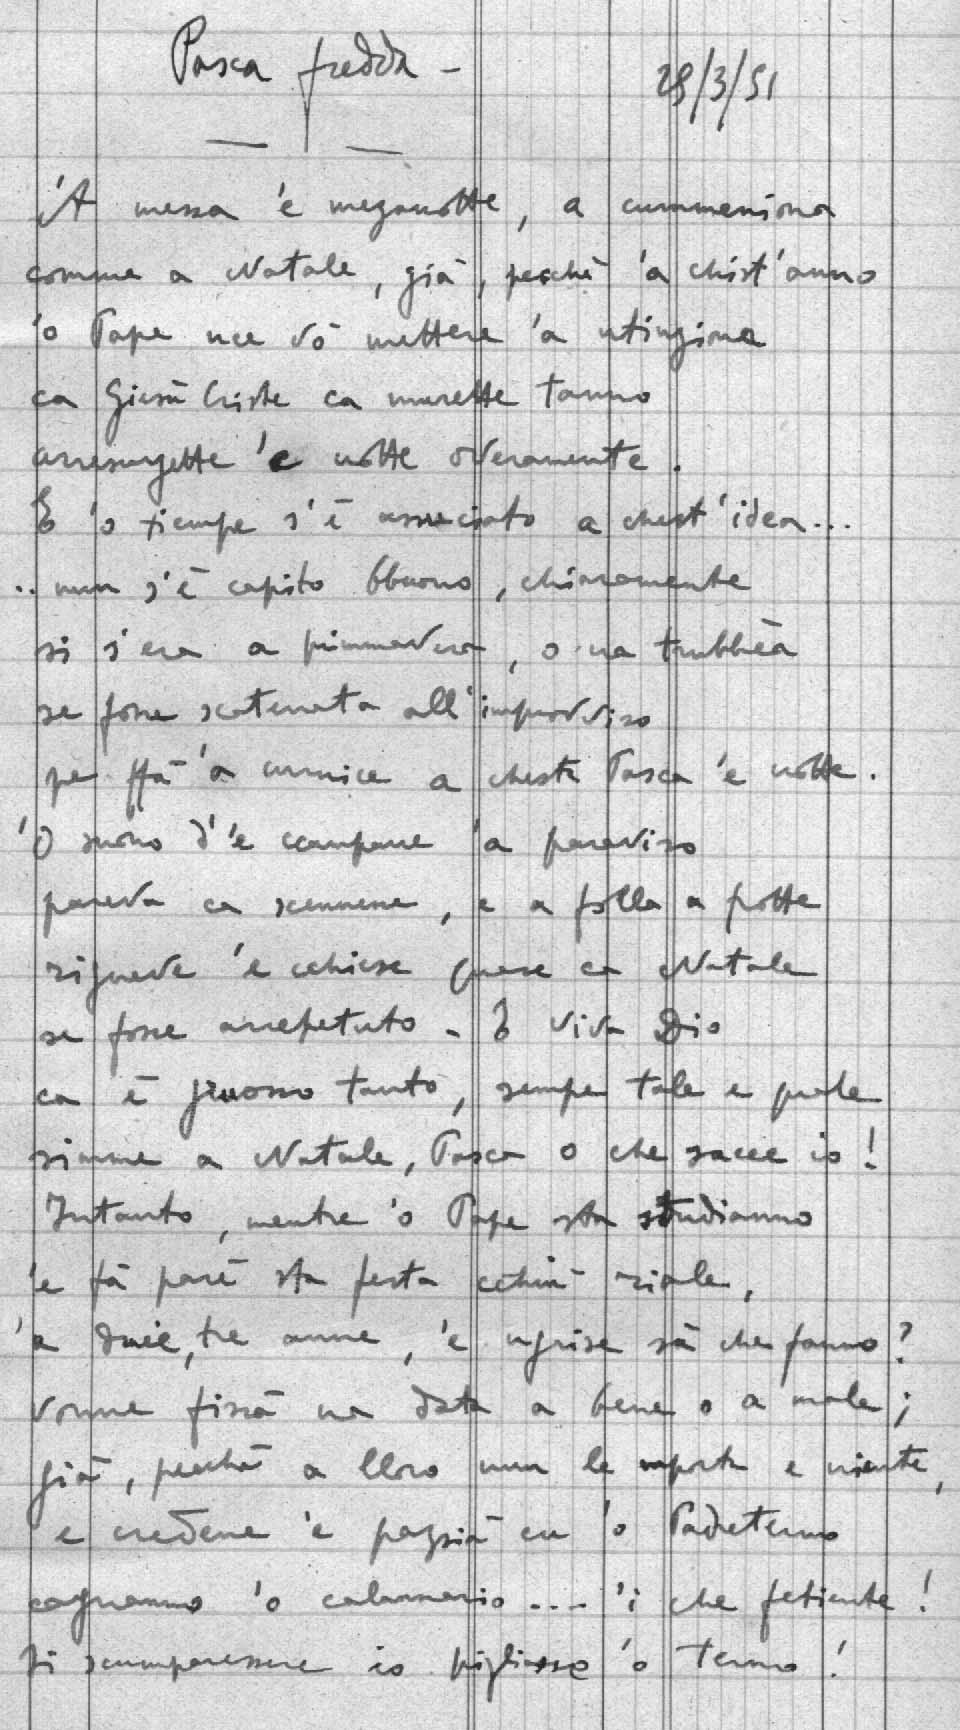 Pasca fredda - 25/3/51
'A messa 'e mezanotte, a cummeniona
comme a Natale, già, pecchè 'a chist'anno
'o Pape nce vò mettere 'a ntinziona
ca Giesù Criste ca murette tanno
arresurgette 'e notte overamente.
E 'o tiempe s'è assuciato a chest'idea...
.. nun s'è capito bbuono, chiaramente
si s'era a primmavera, o na trubbèa
se fosse scatenata all'impruvviso
pe ffà 'a curnice a chesta Pasca 'e notte.
'O suono d''e ccampane 'a paraviso
pareva ca scennene, e a folla a frotte
rigneve 'e cchiese quase ca Natale
se fosse arrepetuto - E viva Dio
ca è gruosso tanto, sempe tale e quale
simme a Natale, Pasca o che sacce io!
Intanto, mentre 'o Pape sta studianno
'e fà parè sta festa cchiù riale,
'a duie, tre anne, 'e ngrise sà che fanno?
vonne fissà na data a bene o a male;
già, pecchè a lloro nun le mporta e niente,
e credene 'e pazzià cu 'o Padreterno
cagnanno 'o calannario .... 'i che fetiente!
Si scumparessere io pigliasse 'o terno!